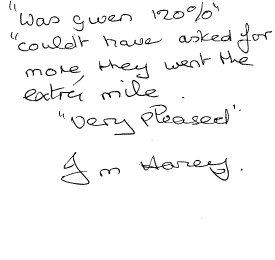 "Was given 120%"
"couldt have asked for
more, they went the
extra mile.
"Very pleased"
J m